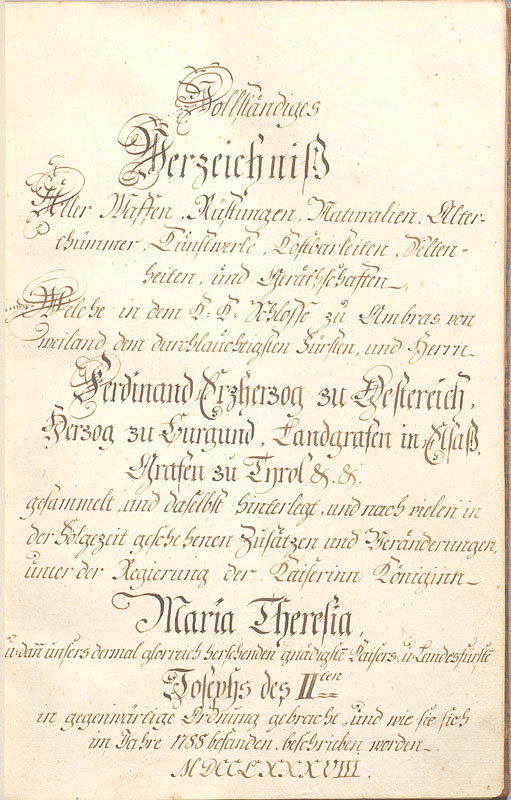 Vollständiges
Verzeichniß
Aller Waffen, Rüstungen, Naturalien, Alter-
thümmer, Kunstwerke, Kostbarkeiten, Selten-
heiten, und Geräthschaften
Welche in dem K: K: Schlosse zu Ambras von
weiland dem durchläuchtigsten Fürsten, und Herrn
Ferdinand Erzherzog zu Oestereich,
Herzog zu Burgund, Landgrafen in Elsaß,
Grafen zu Tyrol &. &.
gesammelt, und daselbst hinterlegt, und nach vielen in
der Folgezeit geschehenen Zusätzen und Veränderungen,
unter der Regierung der Kaiserinn Königinn
Maria Theresia,
u: dan̄ unsers dermal glorreich herschenden gnädigstē Kaisers, u: Landesfürstē
Josephs des II ten
in gegenwärtige Ordnung gebracht, und wie sie sich
im Jahre 1788 befanden, beschrieben worden.
MDCCLXXXVIII.